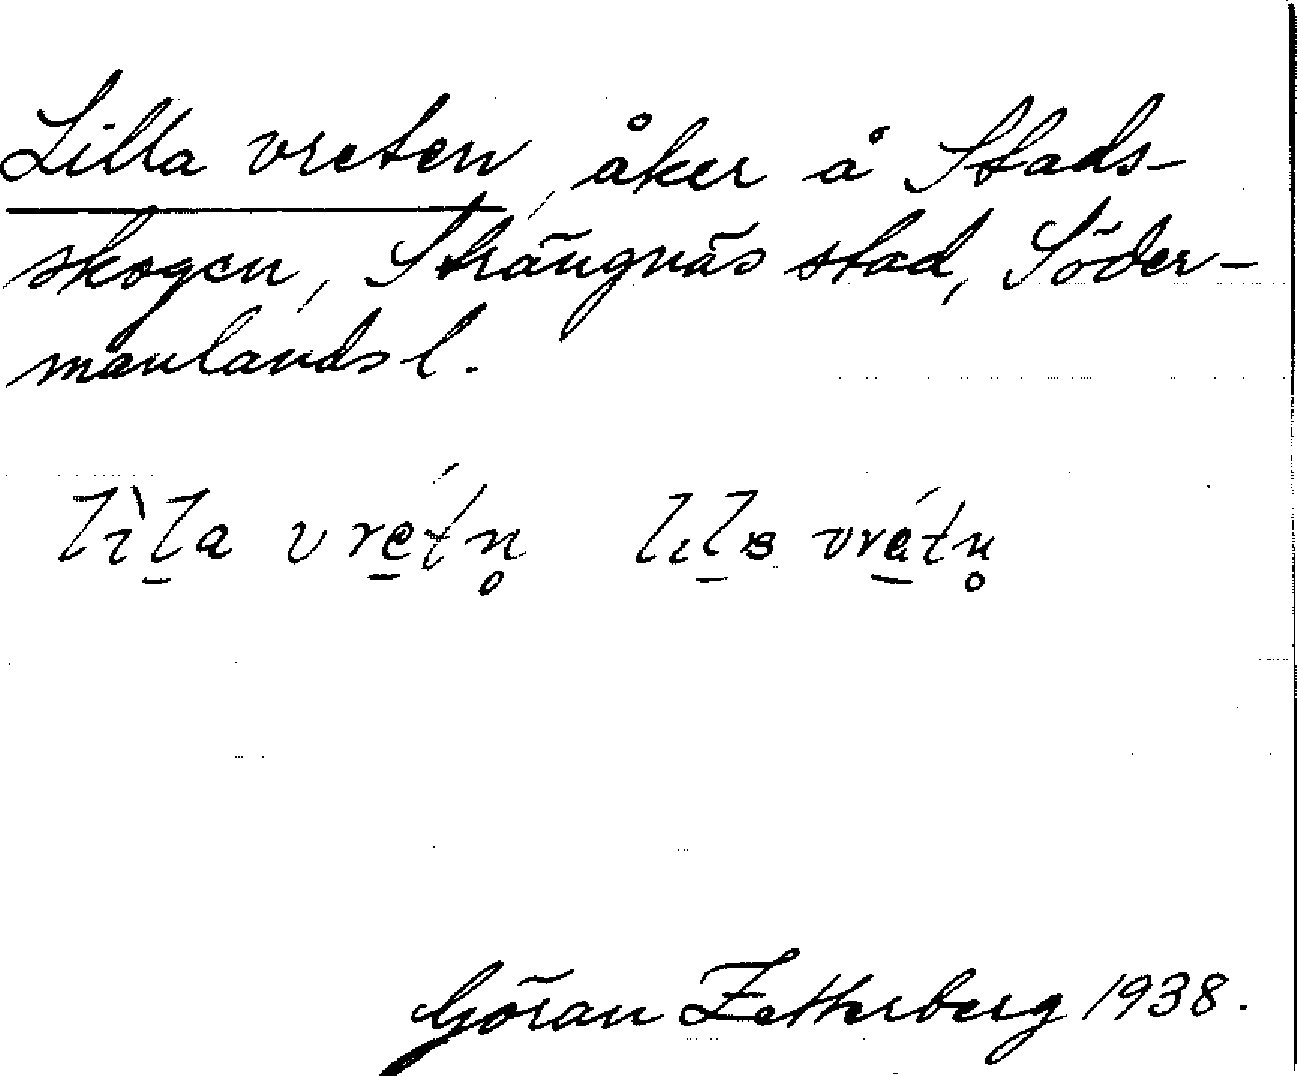 Lilla vreten, åker å Stads-
skogen, Strängnäs stad, Söder-
manlands l.
lìl̠a vré̠tn̥ lıl̠ɞ vré̠tn̥
Göran Zetterberg 1938.